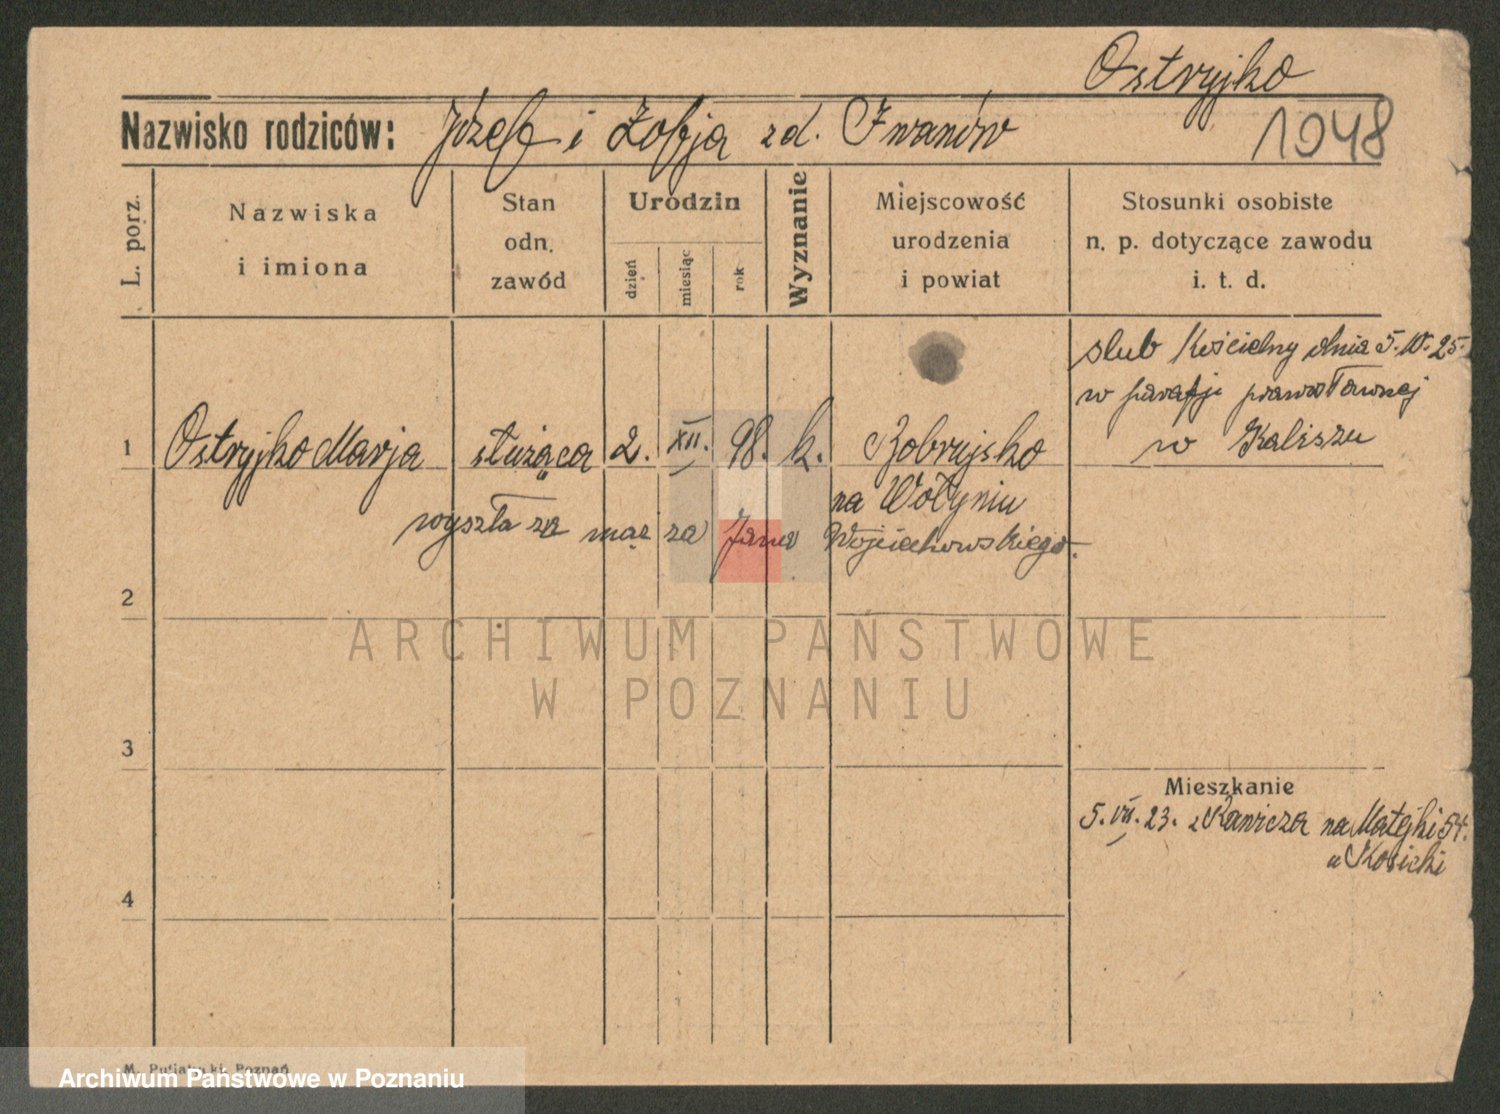 Ostryjko
Nazwisko rodziców: Józef i Zofja zd. Iwanów
1948
L. porz.
Nazwiska i imiona
Stan odn. zawód
Urodzin
dzień
miesiąc
rok
Wyznanie
Miejscowość urodzenia i powiat
Stosunki osobiste n. p. dotyczące zawodu i. t. d.
slub Kościelny dnia 5. IV. 25.
w parafji prawosławnej
w Kaliszu
1 Ostryjko Marja służąca 2. XII. 98. k. Bobrujsko
na Wołyniu
wyszła za mąż za Jana Wojciechowskiego.
2
3
Mieszkanie
5. VII. 23. z Rawicza na Matejki 54.
u Kosicki
4
ARCHIWUM PAŃSTWOWE
W POZNANIU
M. Putiatycki, Poznań
Archiwum Państwowe w Poznaniu